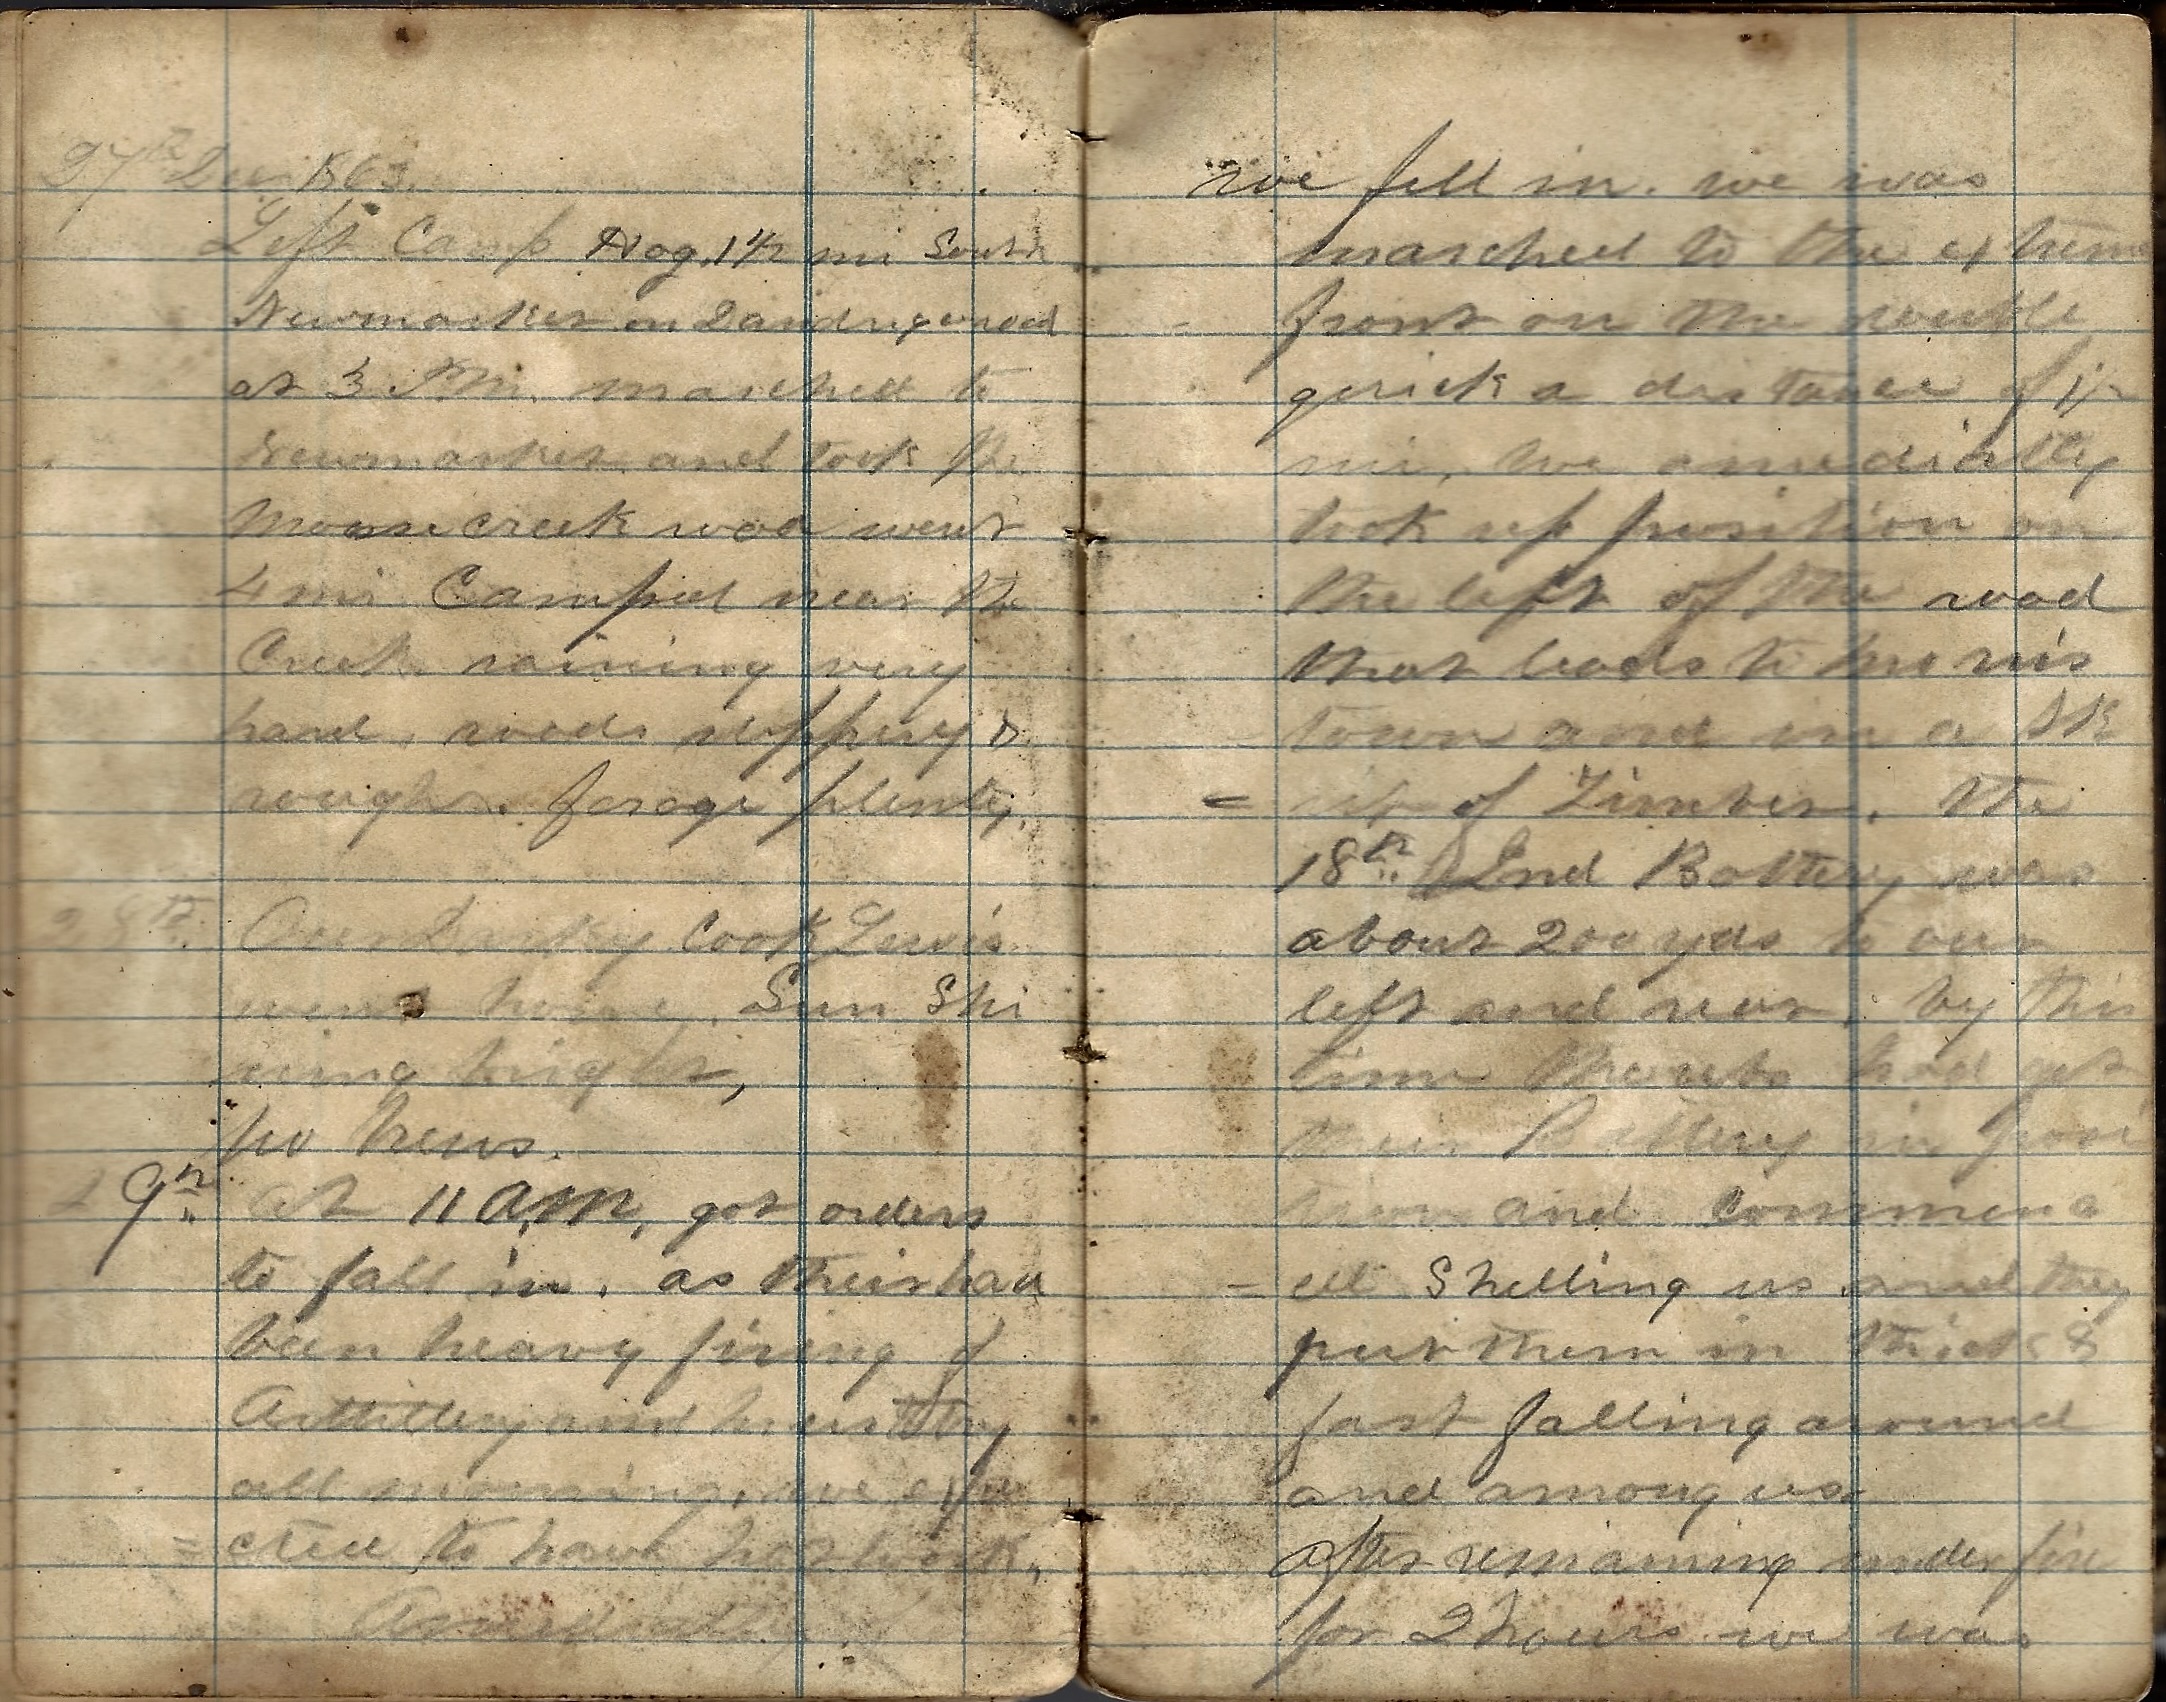 27th Dec 1863.
Left Camp Hog. 1½ mi South
Newmarket on Dandrige road
at 3 P.M. marched to
Newmarket and took the
Mosse creek road went
4 mi Camped near the
Creek raining very
hard, roads slippery &
rough. forage plenty,
28th Our Darkey Cook Lewis
went home, Sun Shi
ning bright,
no News.
29th at 11 A.M, got orders
to fall in. as their had
been heavy firing of
Artillery and
all morning, we expe
= cted to have hot work,
we fell in. we was
marched to the extreme
front on the double
quick a distance of 1½
mi, we amediatly
took up position on
the left of the road
that leads to Morris
town and in a sk
= irt of Timber. the
18th Ind Battery was
about 200 yds to our
left and rear, by this
time the rebs had got
their Battery in posi
tion and commenc
= ed Shelling us and they
put them in thick &
fast falling around
and among us.
after remaining under fire
for 2 hours we was